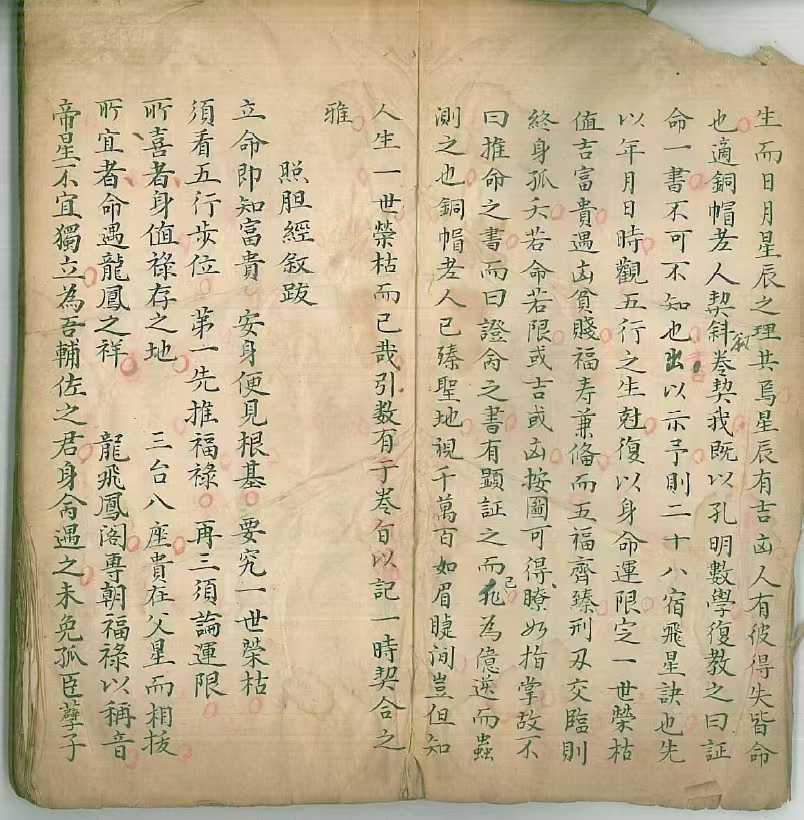 生而日月星辰之理其焉星辰有吉凶人有彼得失皆命
也適銅帽老人契斜叙卷契我既以孔明數學復教之曰証
命一書不可不知也出以示予則二十八宿飛星訣也先
以年月日時觀五行之生尅復以身命運限定一世榮枯
值吉富貴遇凶貧賤福寿兼偹而五福齊臻刑刃交臨則
終身孤夭若命若限或吉或凶按圖可得瞭如指掌故不
曰推命之書而曰證命之書有顕証之而已非為億逆而蠡
測之也銅帽老人已臻聖地視千萬百如眉睫间豈但知
人生一世榮枯而已哉引数有于卷百以記一時契合之
雅
照胆經叙跋
立命即知富貴 安身便見根基 要究一世榮枯
須看五行步位 第一先推福禄 再三須論運限
所喜者身值祿存之地 三台八座貴在父星而相抜
所宜者命遇龍鳳之祥 龍飛鳳阁專朝福禄以稱音
帝星不宜獨立為吾輔佐之君身命遇之未免孤臣孽子